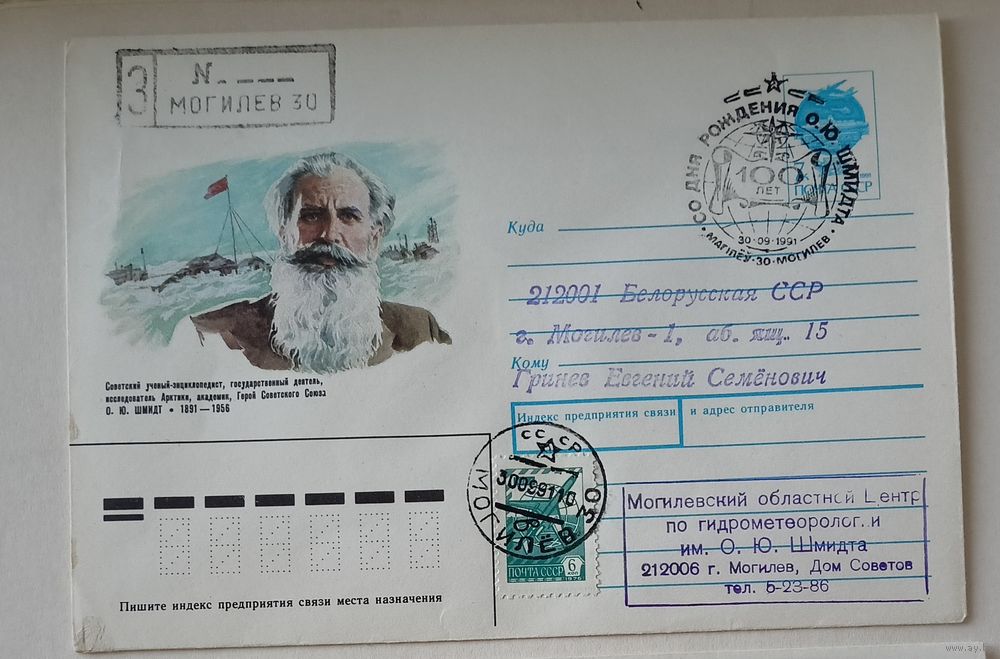 З
N. _ _ _ _
МОГИЛЕВ 30
СО ДНЯ РОЖДЕНИЯ О.Ю. ШМИДТА
100
ЛЕТ
30·09·1991
• МАГІЛЁЎ·30·МОГИЛЕВ •
ПОЧТА СССР
Советский ученый-энциклопедист, государственный деятель,
исследователь Арктики, академик, Герой Советского Союза
О. Ю. ШМИДТ • 1891—1956
Куда
212001 Белорусская ССР
г. Могилев-1, аб. ящ. 15
Кому
Гринев Евгений Семёнович
Индекс предприятия связи и адрес отправителя
СССР
ПОЧТА СССР
6
КОП
1976
Могилевский областной Центр
по гидрометеорологии
им. О. Ю. Шмидта
212006 г. Могилев, Дом Советов
тел. 5-23-86
Пишите индекс предприятия связи места назначения